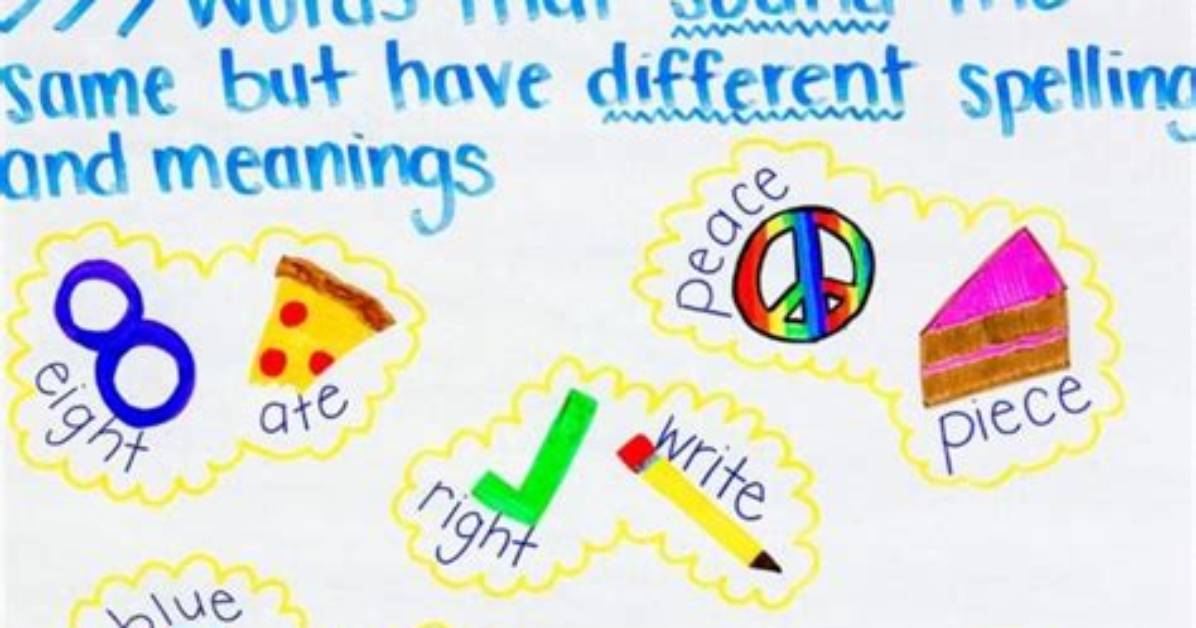 words that sound the
same but have different spelling
and meanings
peace
eight
ate
piece
right
write
blue